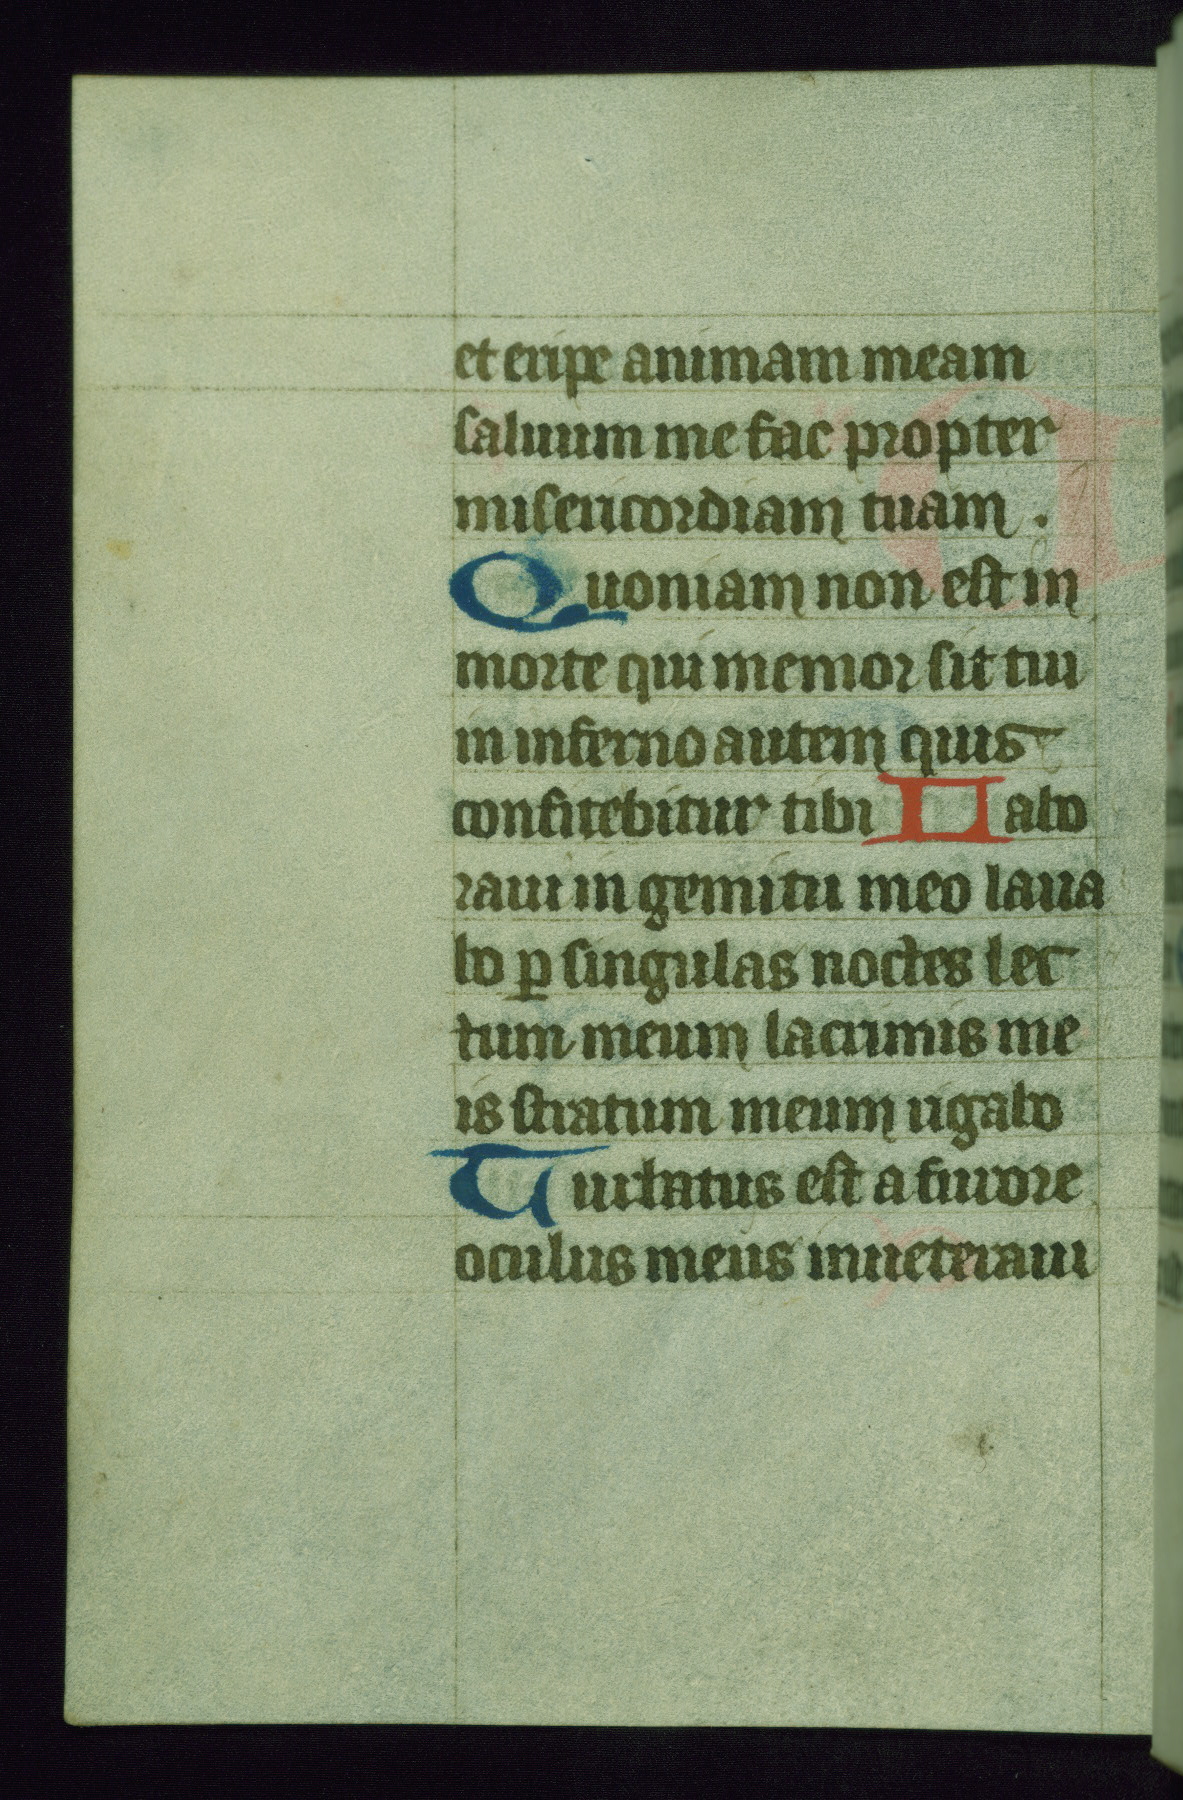 et eripe animam meam
saluum me fac propter
misericordiam tuam .
Quoniam non est in
morte qui memor sit tui
in inferno autem quis
confitebitur tibi Labo
raui in gemitu meo laua
bo p singulas noctes lec
tum meum lacrimis me
is stratum meum rigabo
Turbatus est a furore
oculus meus inueteraui